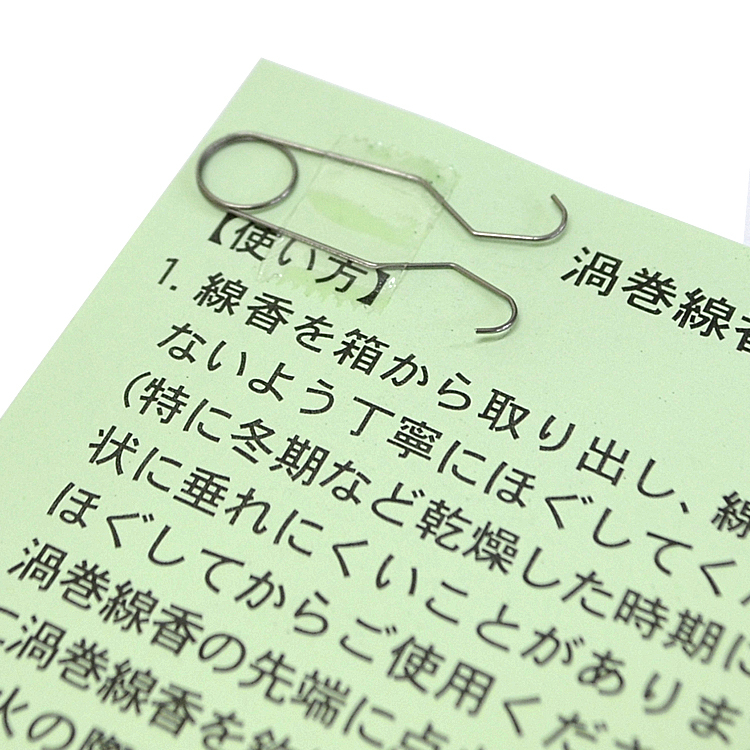 渦巻線香
【使い方】
1. 線香を箱から取り出し、線
ないよう丁寧にほぐしてく
（特に冬期など乾燥した時期に
状に垂れにくいことがありま
ほぐしてからご使用くださ
渦巻線香の先端に点
に渦巻線香を
火の